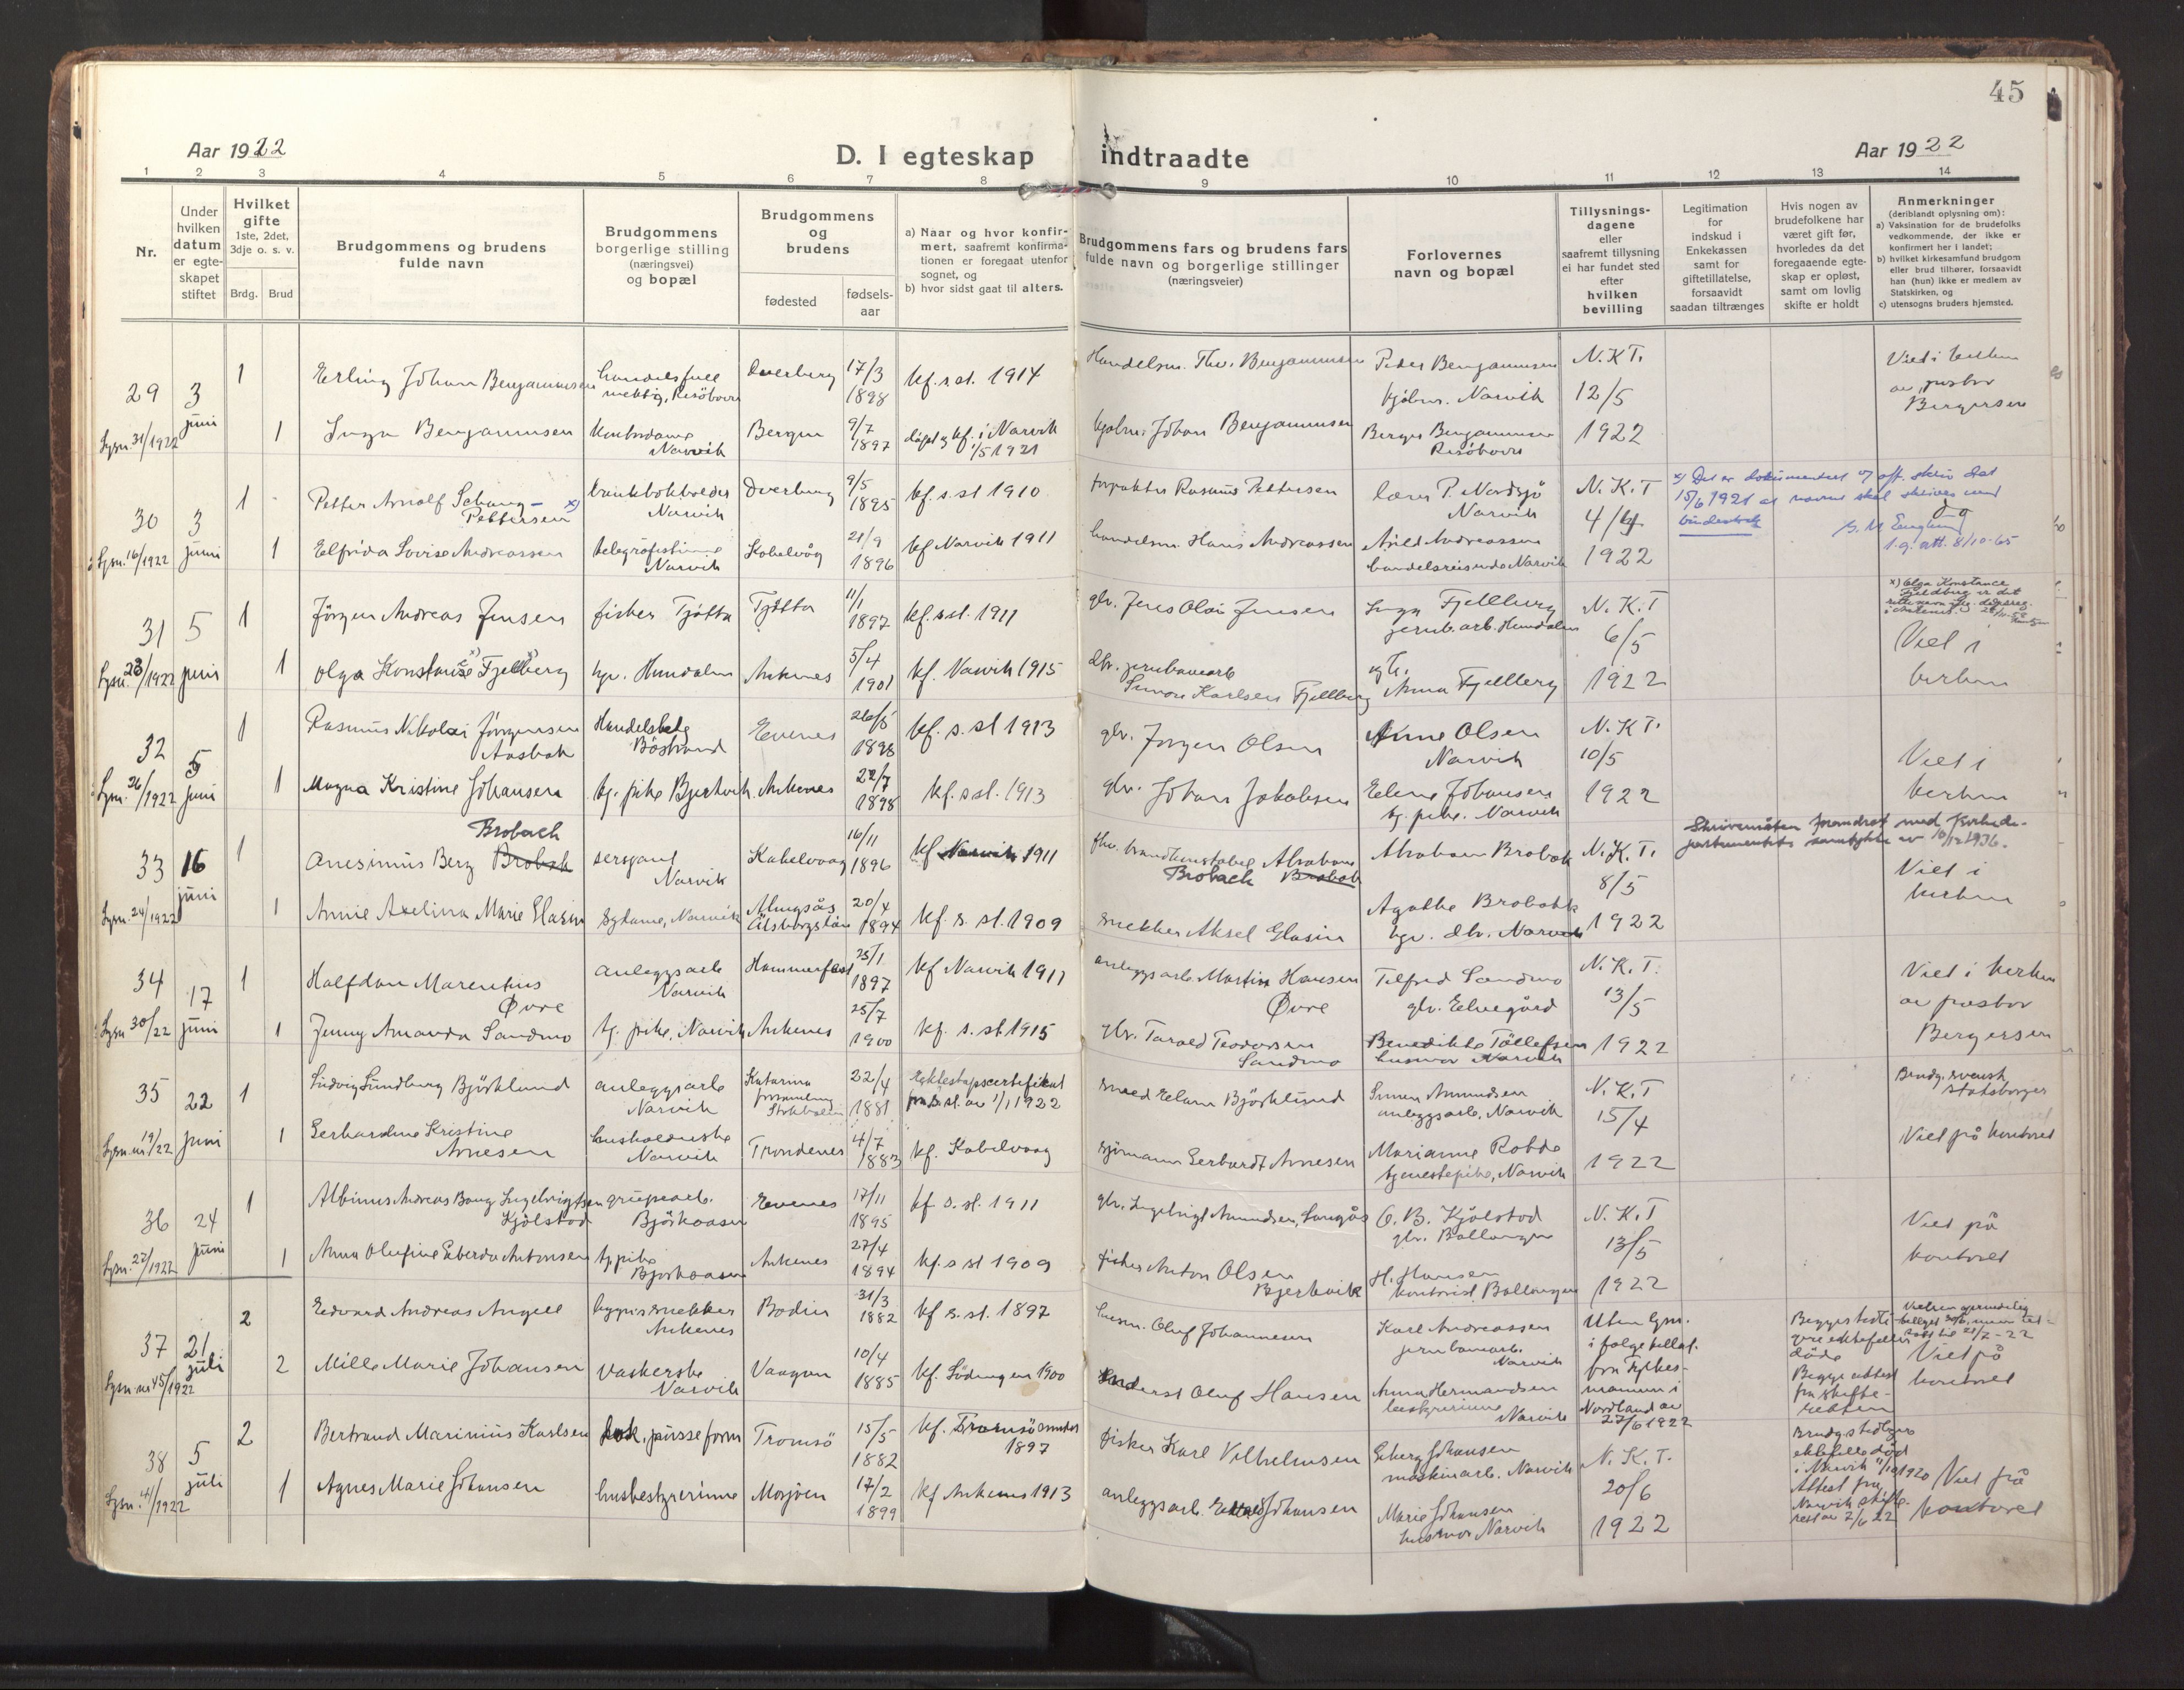 45
Aar 1922 D. I egteskap indtraadte Aar 1922
1 2 3 4 5 6 7 8 9 10 11 12 13 14
Nr.
Under hvilken datum er egteskapet stiftet
Hvilket gifte 1ste, 2det, 3dje o. s. v.
Brdg. Brud
Brudgommens og brudens fulde navn
Brudgommens borgerlige stilling (næringsvei) og bopæl
Brudgommens og brudens
fødested
fødselsaar
a) Naar og hvor konfirmert, saafremt konfirmationen er foregaat utenfor sognet, og
b) hvor sidst gaat til alters.
Brudgommens fars og brudens fars fulde navn og borgerlige stillinger (næringsveier)
Forlovernes navn og bopæl
Tillysningsdagene eller saafremt tillysning ei har fundet sted efter hvilken bevilling
Legitimation for indskud i Enkekassen samt for giftetillatelse, forsaavidt saadan tiltrænges
Hvis nogen av brudefolkene har været gift før, hvorledes da det foregaaende egteskap er opløst, samt om lovlig skifte er holdt
Anmerkninger (deriblandt oplysning om):
a) Vaksination for de brudefolks vedkommende, der ikke er konfirmert her i landet;
b) hvilket kirkesamfund brudgom eller brud tilhører, forsaavidt han (hun) ikke er medlem av Statskirken, og
c) utensogns bruders hjemsted.
29 3 juni 1 Erling Johan Benjaminsen handelsfullmektig, Risöhavn Dverberg 17/3 1898 kf. s. st. 1914 Handelsm. Thv. Benjaminsen Peder Benjaminsen kjöbm. Narvik N.K.T. 12/5 1922 Viet i kirken av pastor Bergersen
Lysn. 31/1922 1 Inga Benjaminsen Kontordame Narvik Bergen 9/7 1897 döpt og kf. i Narvik 1/5 1921 kjöbm. Johan Benjaminsen Berger Benjaminsen Risöhavn
30 3 juni 1 Petter Arnolf Schang-Pettersen x) bankbokholder Narvik Dverberg 9/5 1895 kf. s. st 1910 forpakter Rasmus Pettersen lærer P. Nordsjö Narvik N.K.T 4/4 1922
x) Det er dokumentert og off. skriv dat 15/6 1921 at navnet skal skrives med bindestrek
1.g. att. 8/10-65
Lysn. 16/1922 1 Elfrida Lovise Andreassen telegrafistinne Narvik Kabelvåg 21/9 1896 kf Narvik 1911 handelsm. Hans Andreassen Arild Andreassen handelsreisende Narvik
31 5 juni 1 Jörgen Andreas Jensen fisker Tjötta Tjötta 11/1 1897 kf. s. st. 1911 gbr. Jens Olai Jensen Inga Fjellberg jernb.arb. Hundalen N.K.T 6/5 1922 Viet i kirken
x) Olga Konstance Fjeldberg er det rette navn
Lysn. 23/1922 1 Olga Konstanse Fjellberg hgr. Hundalen Ankenes 5/4 1901 kf. Narvik 1915 dbr. jernbanearb Simon Karlsen Fjellberg Anna Fjellberg
32 5 juni 1 Rasmus Nikolai Jörgensen Aasbak Handelsbetj. Böstrand Evenes 26/5 1898 kf. s. st 1913 gbr. Jörgen Olsen Anne Olsen Narvik N.K.T. 10/5 1922 Viet i kirken
Lysn. 26/1922 1 Magna Kristine Johansen tj. pike Bjerkvik Ankenes 22/7 1898 kf. s st. 1913 gbr. Johan Jakobsen Elene Johansen tj. pike. Narvik
33 16 juni 1 Anesimus Berg Brobak Brobach sersjant Narvik Kabelvaag 16/11 1896 kf Narvik 1911 fhv. brandkonstabel Abraham Brobak Brobach Abraham Brobak N.K.T. 8/5 1922 Viet i kirken
Skrivemåten forandret med Kirkedepartementets samtykke av 10/12 1936.
Lysn. 24/1922 1 Annie Axelina Marie Glasin sydame, Narvik Alingsås Älsborgslän 20/4 1894 kf. s. st. 1909 snekker Aksel Glasin Agathe Brobakk hgr. dtr. Narvik
34 17 juni 1 Halfdan Marentius Øvre anleggsarb Narvik Hammerfest 25/1 1897 kf Narvik 1911 anleggsarb. Martin Hansen Øvre Tilfred Sandmo gbr. Elvegård N.K.T. 13/5 1922 Viet i kirken av pastor Bergersen
Lysn 30/22 1 Jenny Amanda Sandmo tj. pike, Narvik Ankenes 25/7 1900 kf. s. st 1915 gbr. Tarald Teodorsen Sandmo Benedikte Tollefsen husmor Narvik
35 22 juni 1 Ludvig Lundberg Björklund anleggsarb Narvik Katarina forsamling Stockholm 22/4 1881 Ekteskapscertifikat fra s. st. av 1/1 1922 smed Elam Björklund Simen Amundsen anleggsarb, Narvik N.K.T 15/4 1922 Brudg. svensk statsborger Viet på kontoret
Lysn. nr 19/22 1 Gerhardine Kristine Arnesen husholderske Narvik Trondenes 4/7 1883 kf. Kabelvaag sjömann Gerhardt Arnesen Marianne Robde tjenestepike, Narvik
36 24 juni 1 Albinus Andreas Bang Ingebrigtsen Kjölstad grubearb. Björkaasen Evenes 17/11 1895 kf s. st. 1911 gbr. Ingebrigt Amundsen, Langås O. B. Kjölstad gbr. Ballangen N.K.T 13/5 1922 Viet på kontoret
Lysn. 27/1922 1 Anna Olufine Eberda Antonsen tj. pike Björkaasen Ankenes 27/4 1894 kf. s st 1909 fisker Anton Olsen Bjerkvik H. Hansen kontorist Ballangen
37 21 juli 2 Edvard Andreas Angell bygn.snekker Ankenes Bodin 31/3 1882 kf s. st. 1897 husm. Oluf Johannesen Karl Andreassen jernbanearb. Narvik Uten lysn. i följe tillat. fra Fylkesmannen i Nordland av 27/6 1922 Begges tidligere ektefeller döde Begge attest fra skifteretten Viet på kontoret
Lysn nr 45/1922 2 Mille Marie Johansen vaskerske Narvik Vaagan 10/4 1885 kf. Lödingen 1900 Oluf Hansen Anna Hermandsen bestyrerinne Narvik
38 5 juli 2 Bertrand Marinius Karlsen lok. pusseform Tromsö 15/5 1882 kf. Tromsö 1897 fisker Karl Vilhelmsen Johansen maskinarb. Narvik N.K.T. 20/6 1922 Brudg. tidligere ektefelle död i Narvik 11/10 1920 Attest fra Narvik skifterett av 2/6 22 Viet på kontoret
Lysn. 41/1922 1 Agnes Marie Johansen husbestyrerinne Mosjöen 17/2 1899 kf Ankenes 1913 anleggsarb. Johansen Marie Johansen husmor Narvik